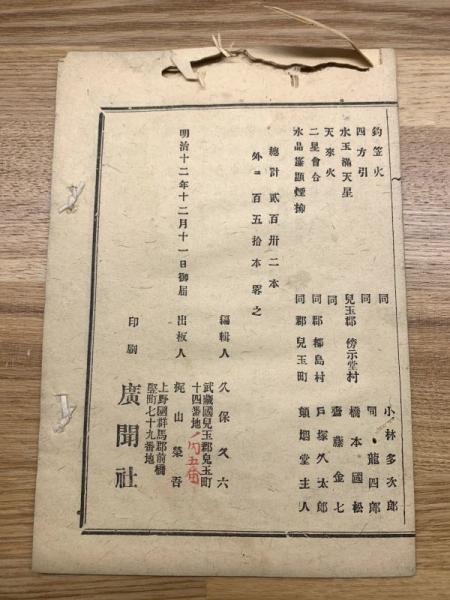 釣笠火 同 小林多次郎
四方引 同 同 龍四郎
水玉滿天星 兒玉郡傍示堂村 橋本國松
天來火 同 齋藤金七
二星會合 同郡都島村 戸塚久太郎
水晶簾顕煙柳 同郡兒玉町 顛烟堂主人
總計貳百卅二本
外ニ百五拾本畧之
明治十二年十二月十一日御届
編輯人 久保久六
武藏國兒玉郡兒玉町
十四番地ノ内五番
出板人 梶山榮吾
上野國群馬郡前橋
竪町七十九番地
印刷 廣聞社